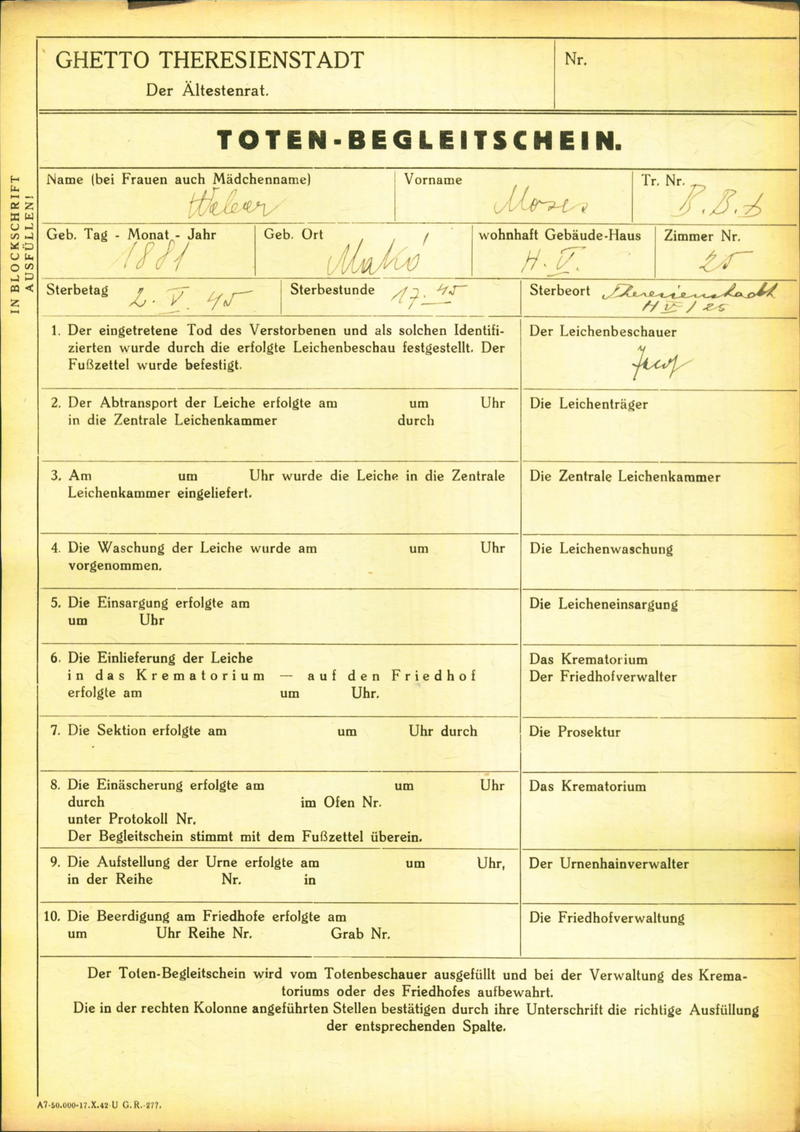 GHETTO THERESIENSTADT
Der Ältestenrat.
Nr.
TOTEN-BEGLEITSCHEIN.
IN BLOCKSCHRIFT
AUSFÜLLEN!
Name (bei Frauen auch Mädchenname)
Vorname Moses
Tr. Nr.
Geb. Tag - Monat - Jahr 1881
Geb. Ort Makó
wohnhaft Gebäude-Haus H. V.
Zimmer Nr. 25
Sterbetag 2. V. 45
Sterbestunde 17.45
Sterbeort Theresienstadt
H V / 25
1. Der eingetretene Tod des Verstorbenen und als solchen Identifi-
zierten wurde durch die erfolgte Leichenbeschau festgestellt. Der
Fußzettel wurde befestigt.
Der Leichenbeschauer
2. Der Abtransport der Leiche erfolgte am um Uhr
in die Zentrale Leichenkammer durch
Die Leichenträger
3. Am um Uhr wurde die Leiche in die Zentrale
Leichenkammer eingeliefert.
Die Zentrale Leichenkammer
4. Die Waschung der Leiche wurde am um Uhr
vorgenommen.
Die Leichenwaschung
5. Die Einsargung erfolgte am
um Uhr
Die Leicheneinsargung
6. Die Einlieferung der Leiche
in das Krematorium — auf den Friedhof
erfolgte am um Uhr.
Das Krematorium
Der Friedhofverwalter
7. Die Sektion erfolgte am um Uhr durch
Die Prosektur
8. Die Einäscherung erfolgte am um Uhr
durch im Ofen Nr.
unter Protokoll Nr.
Der Begleitschein stimmt mit dem Fußzettel überein.
Das Krematorium
9. Die Aufstellung der Urne erfolgte am um Uhr,
in der Reihe Nr. in
Der Urnenhainverwalter
10. Die Beerdigung am Friedhofe erfolgte am
um Uhr Reihe Nr. Grab Nr.
Die Friedhofverwaltung
Der Toten-Begleitschein wird vom Totenbeschauer ausgefüllt und bei der Verwaltung des Krema-
toriums oder des Friedhofes aufbewahrt.
Die in der rechten Kolonne angeführten Stellen bestätigen durch ihre Unterschrift die richtige Ausfüllung
der entsprechenden Spalte.
A7-50.000-17.X.42 U G.R.-277.